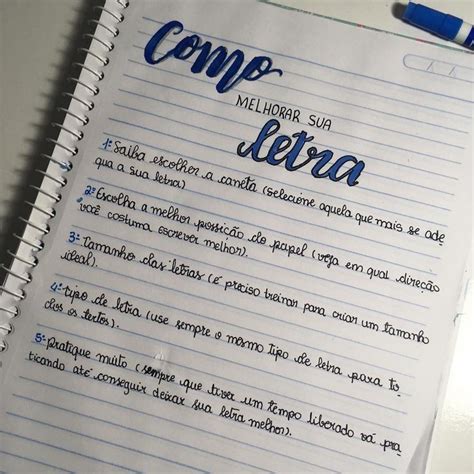 Como
MELHORAR SUA
letra
1- Saiba escolher a caneta (selecione aquela que mais se ade
qua a sua letra)
2- Escolha a melhor possição do papel (veja em qual direção
você costuma escrever melhor).
3- Tamanho das letras (é preciso treinar para criar um tamanho
ideal).
4- tipo de letra (use sempre o mesmo tipo de letra para to
dos os textos).
5- pratique muito (sempre que tiver um tempo liberado vá pra
ticando até conseguir deixar sua letra melhor).